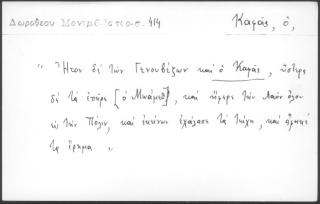 Δωροθεου Μονεμβ. Ιστορ. σ. 414
Καφᾶς, ὁ,
"Ἦτον δὲ τῶν Γενουβέζων καὶ ὁ Καφᾶς, ὕστερα
δὲ τὸ ἐπῆρε [ὁ Μωάμεθ], καὶ ἤφερε τὸν λαὸν ὅλον
εἰς τὴν Πόλιν, καὶ ἐκείνου ἐχάλασε τὰ τείχη, καὶ
τα ἔρημα. "